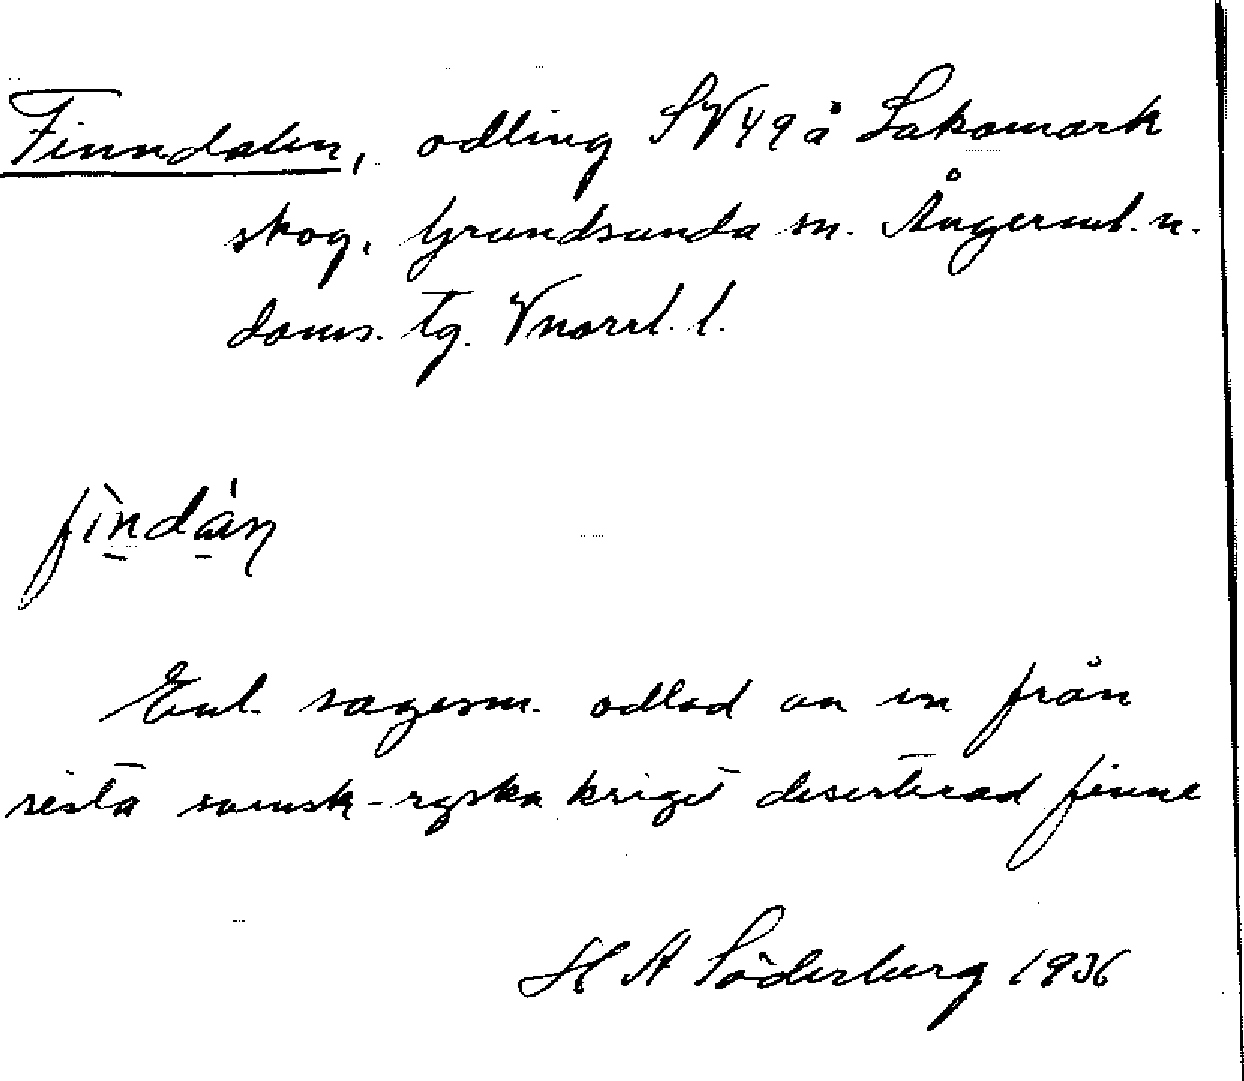 Finndalen, odling SV49 å Lakamark
skog, Grundsunda sn. Ångerml. n.
doms. tg. Vnorrl. l.
fìndáṇ
Enl. sagesm. odlad av en från
sista svensk-ryska kriget deserterad finne
H A Söderberg 1936